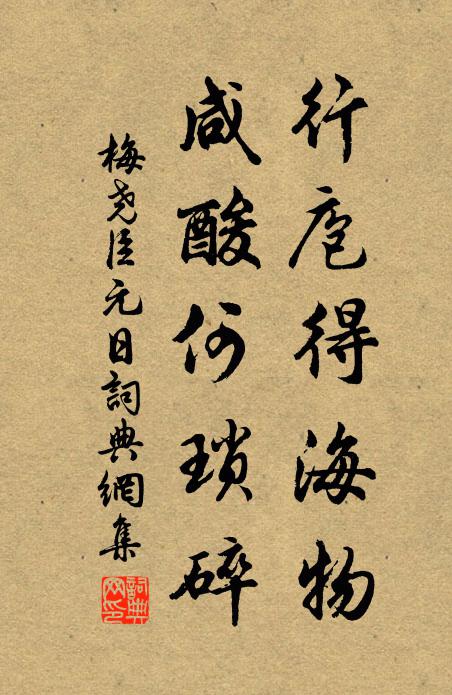 行庖得海物
咸酸何瑣碎
梅堯臣元日詞典網集
詞典網印